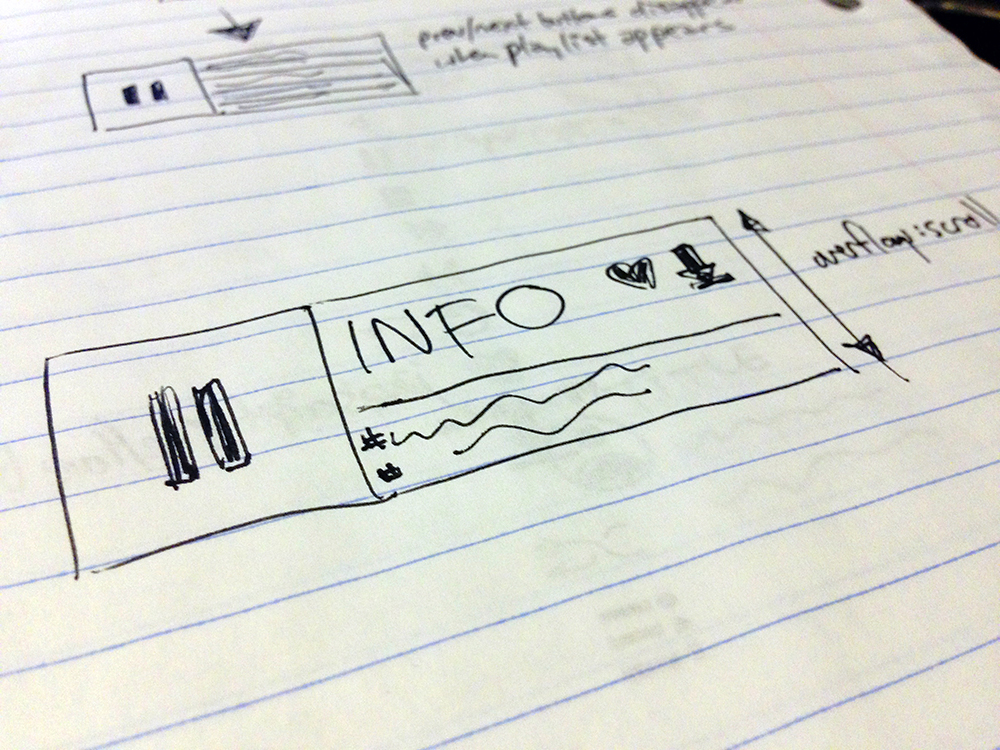 prev/next buttons disappear
when playlist appears
INFO
overflow:scroll